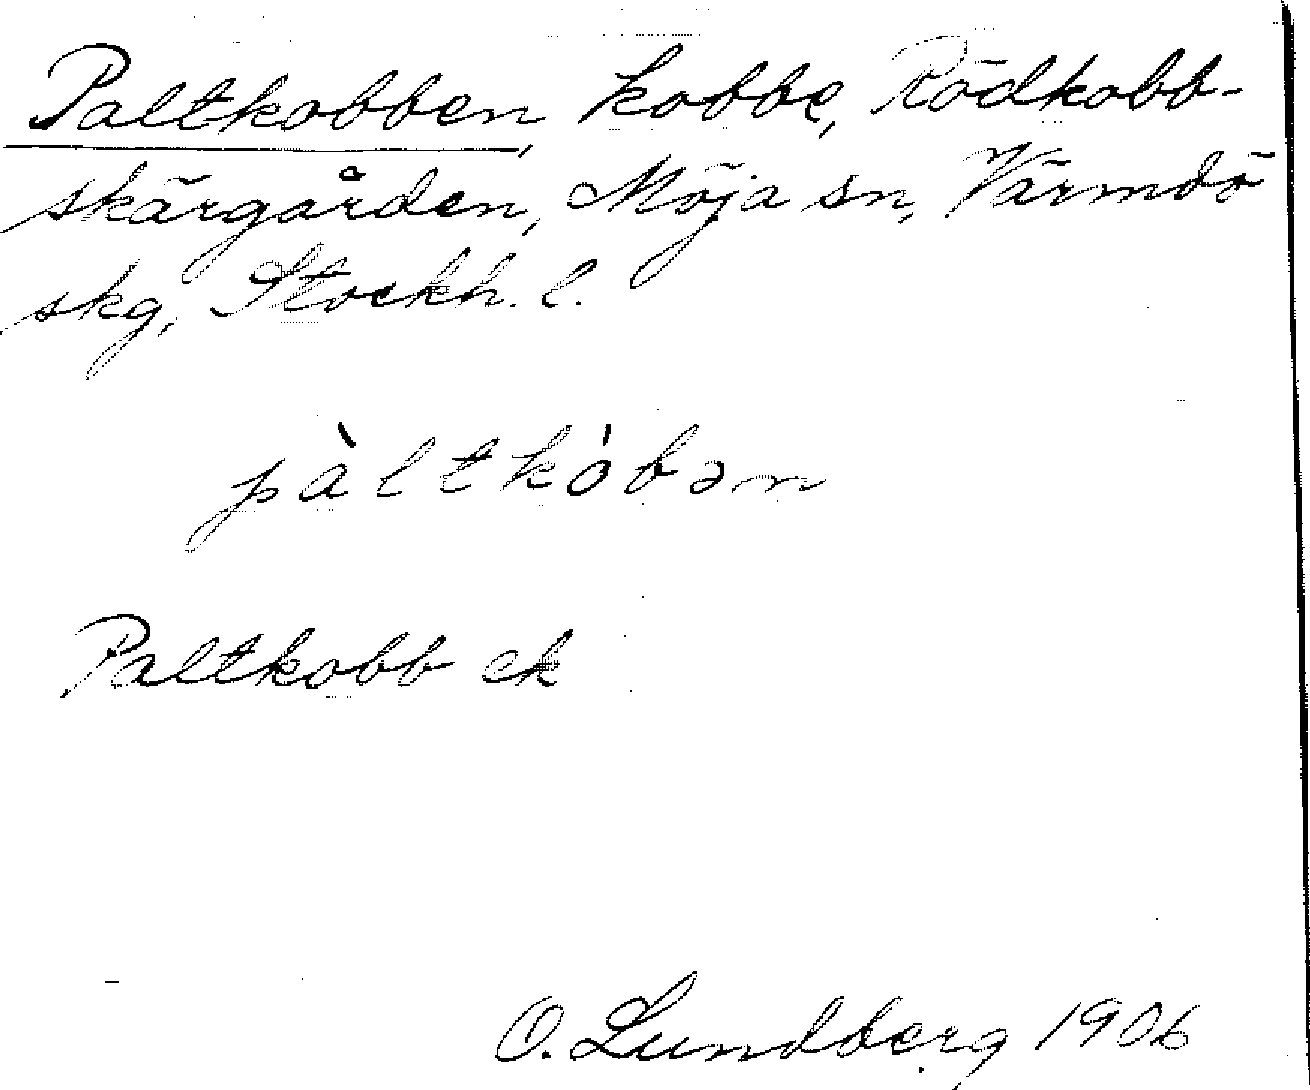 Paltkobben, kobbe, Rödkobb-
skärgården, Möja sn, Värmdö
skg, Stockh. l.
pàltkóbən
Paltkobb ek
O. Lundberg 1906